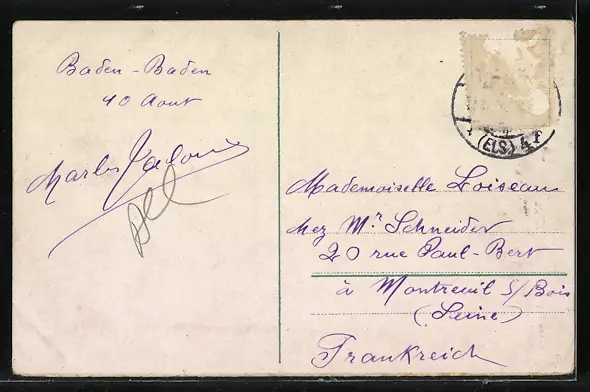 Baden-Baden
10 Aout
Charles
(ELS)
Mademoiselle Loiseau
chez Mr Schneider
20 rue Paul-Bert
à Montreuil s/Bois
(Seine)
Frankreich